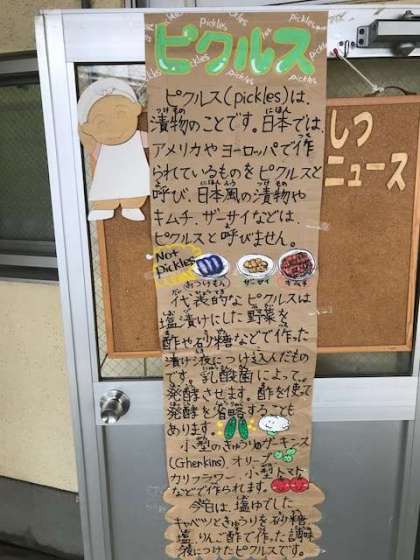 pickles
ピクルス
ピクルス(pickles)は、
漬物のことです。日本では、
アメリカやヨーロッパで作
られているものをピクルスと
呼び、日本風の漬物や
キムチ、ザーサイなどは、
ピクルスと呼びません。
Not Pickles
おつけもの ザーサイ キムチ
代表的なピクルスは
塩漬けにした野菜を
酢や砂糖などで作った
漬け液につけ込んだもの
です。乳酸菌によって
発酵させます。酢を使って
発酵を省略することも
あります。
小型のきゅうり(ガーキンス
(Gherkins)、オリーブ
カリフラワー、小型トマト
などで作られます。
今日は、塩ゆでした
キャベツときゅうりを砂糖
塩、りんご酢で作った調味
液につけたピクルスです。
しつ
ニュース